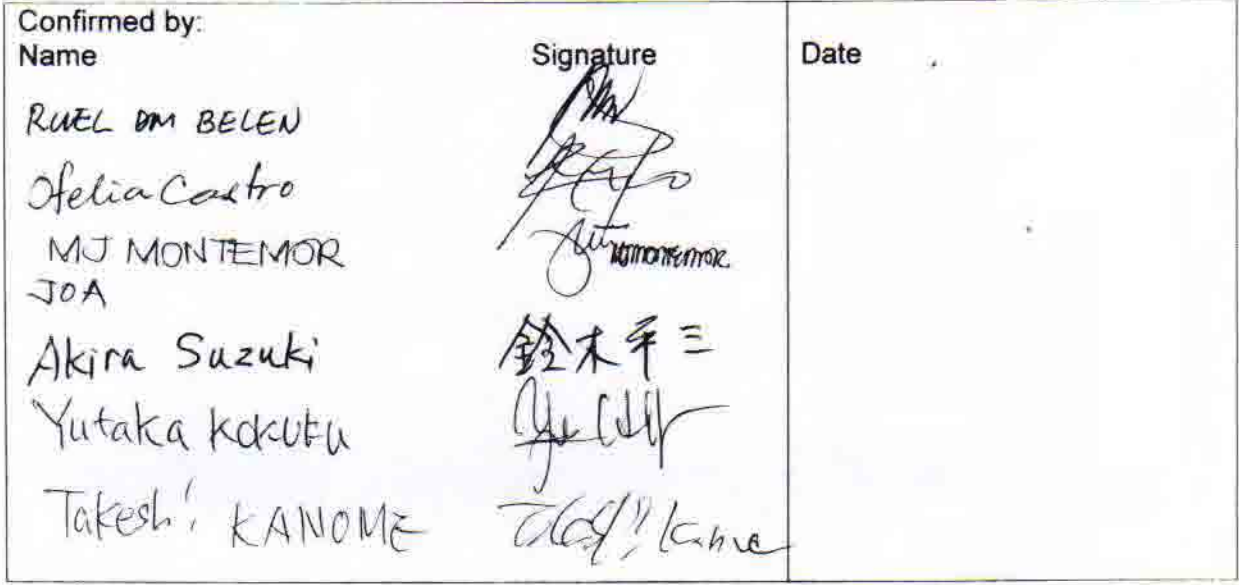 Confirmed by:
Name Signature Date
RUEL DM BELEN
Ofelia Castro
MJ MONTEMOR MJMONTEMOR
JOA
Akira Suzuki 鈴木平三
Yutaka Kokufu
Takeshi KANOME